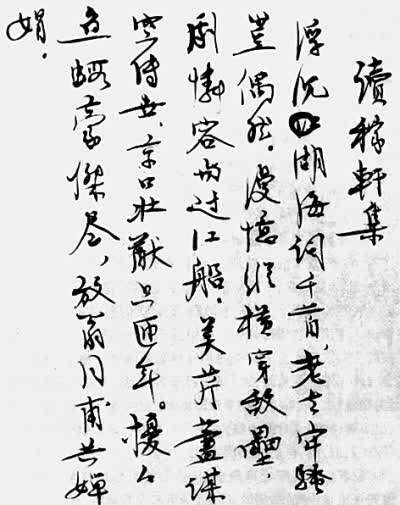 讀稼軒集
浮沉湖海词千首,老去牢騷
豈偶然。漫憶縱橫穿敵壘,
劇憐容与过江船。美芹藎謀
空傳世,京口壯猷只匝年。擾々
魚蝦豪傑盡,放翁同甫共嬋
娟。